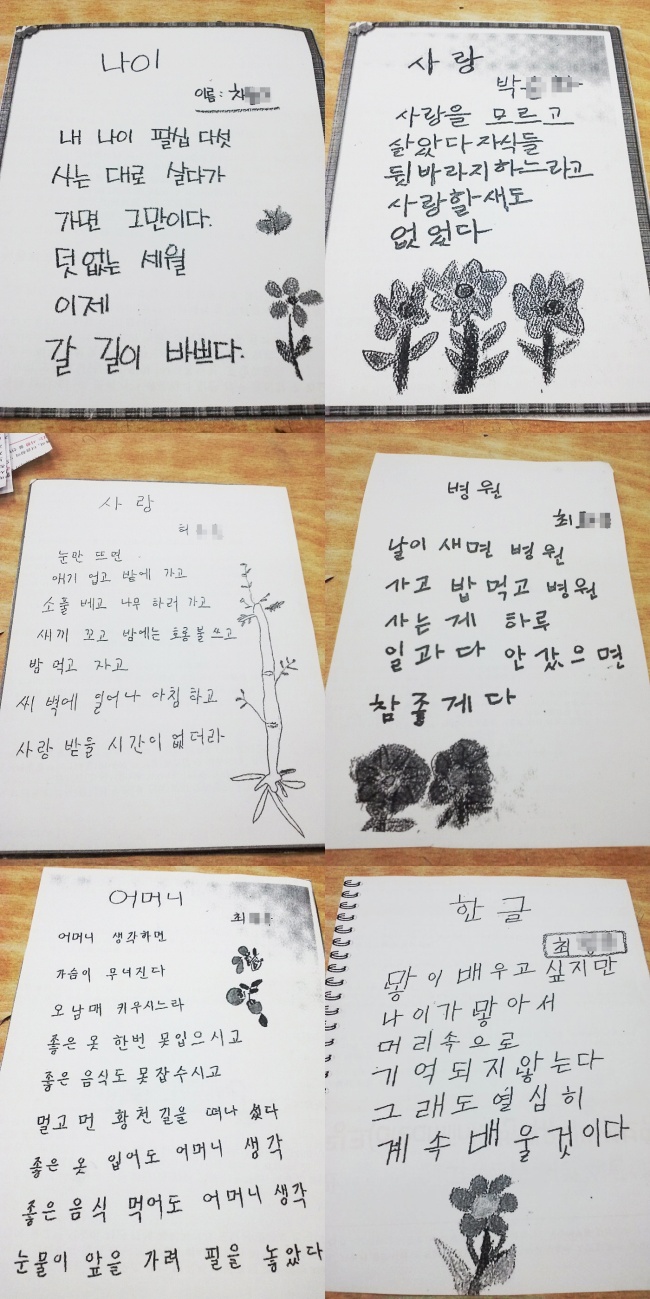 나이
이름: 차
내 나이 펄십 다섯
사는 대로 살다가
가면 그만이다.
덧없는 세월
이제
갈 길이 바쁘다.
사랑
박
사랑을 모르고
삶았다 자식들
뒷바라지하느라고
사랑할새도
없었다
사랑
허
눈만 뜨면
애기 업고 밭에 가고
소풀 베고 나무 하러 가고
새끼 꼬고 밤에는 호롱불 쓰고
밤 먹고 자고
씨벽에 일어나 아침 하고
사랑 받을 시간이 없더라
병원
최
날이 새면 병원
가고 밥먹고 병원
사는 게 하루
일과다 안갔으면
참 좋게다
어머니
최
어머니 생각하면
가슴이 무너진다
오남매 키우시느라
좋은 옷 한번 못입으시고
좋은 음식도 못잡수시고
멀고 먼 황천길을 떠나셨다
좋은 옷 입어도 어머니 생각
좋은 음식 먹어도 어머니 생각
눈물이 앞을 가려 필을 놓았다
한글
최
많이 배우고 싶지만
나이가 많아서
머리속으로
기억되지않는다
그래도 열심히
계속 배울것이다